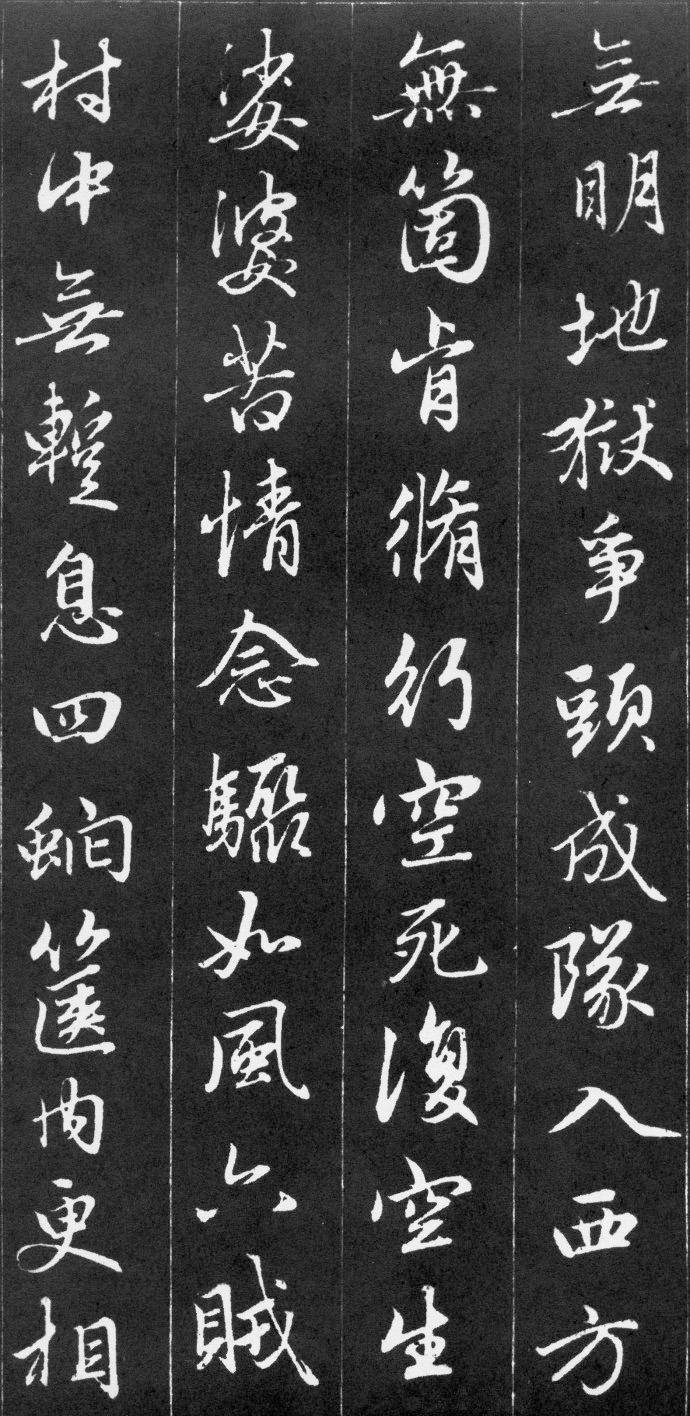 無明地獄爭頭成隊入西方
無箇肯脩行空死復空生
娑婆苦情念驟如風六賊
村中無蹔息四蚖篋內更相